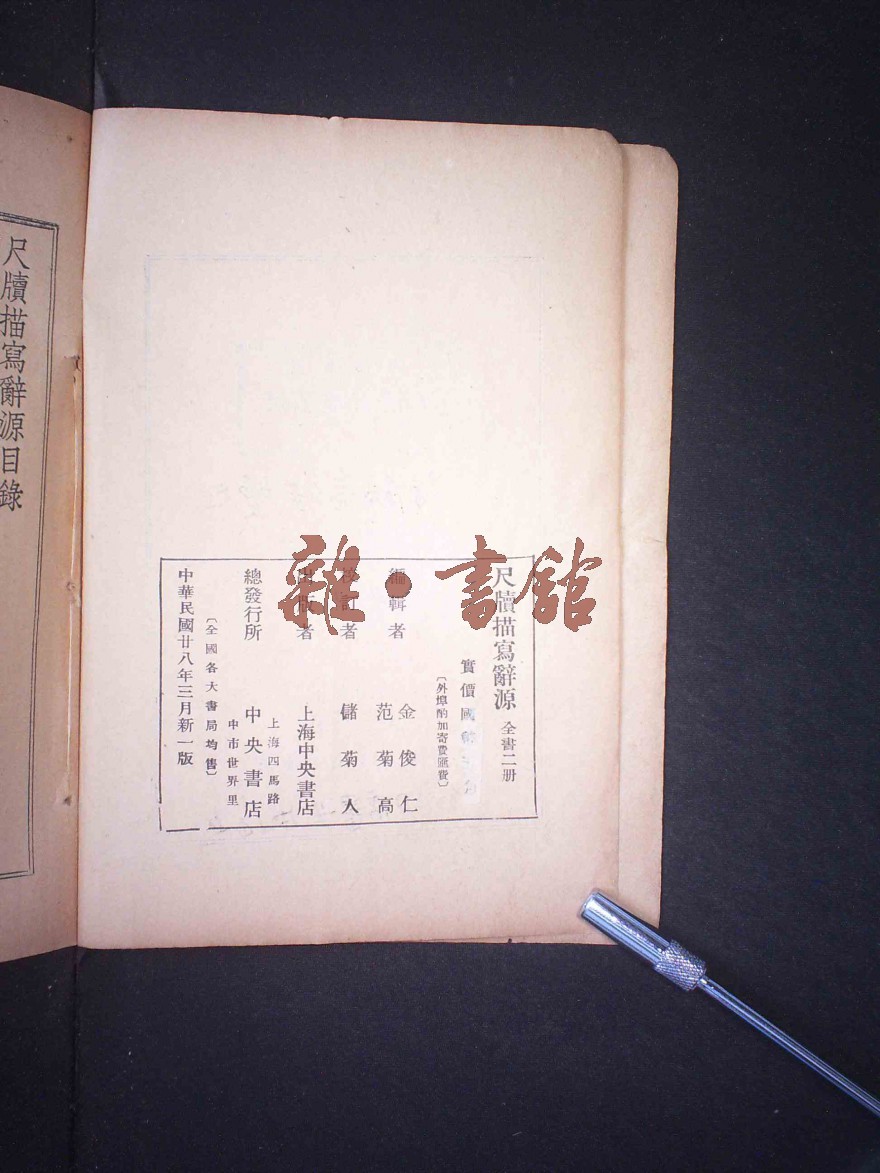 尺牘描寫辭源 全書二册
實價國
〔外埠酌加寄費匯費〕
編輯者 金俊仁
范菊高
校訂者 儲菊人
出版者 上海中央書店
上海四馬路
總發行所 中央書店
中市世界里
〔全國各大書局均售〕
中華民國廿八年三月新一版
尺牘描寫辭源目錄
雜·書館